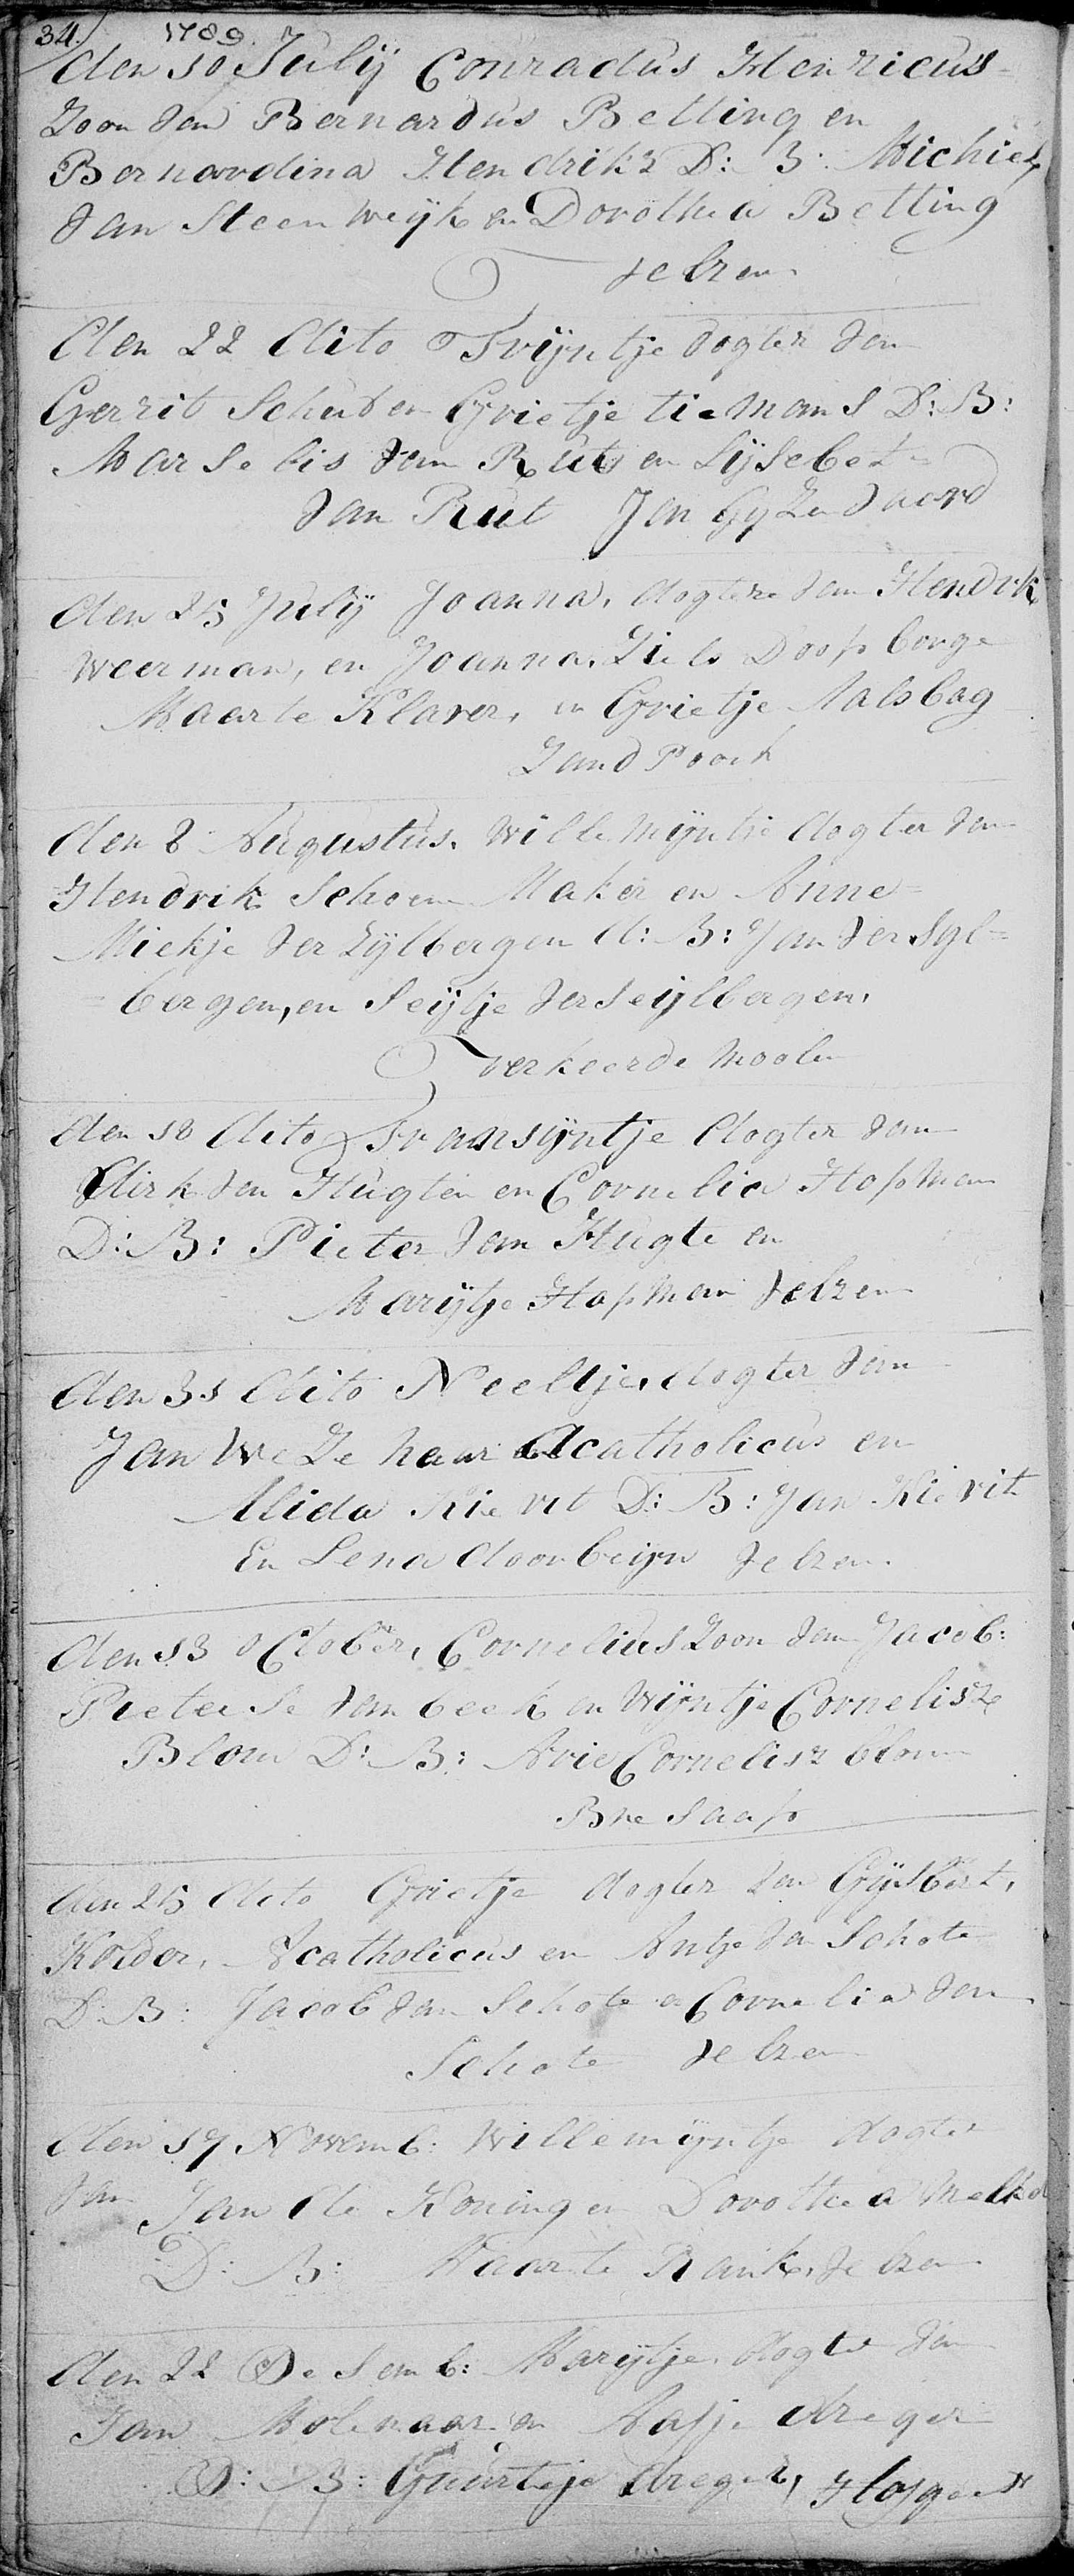 34. 1789.
den 10 Julij Conradus Henricus=
Zoon van Bernardus Betting en
Bernardina Hendriks D: B: Michiel
van Steenweijk en Dorothea Betting
velzen
den 22 dito Trijntje dogter van
Gerrit Schut en Grietje tiemans D: B:
Marselis van Rut en Lijsebet=
van Rut Jan Gijzenvaord
den 25 Julij Joanna, dogter van Hendrik
weerman, en Joanna Ziels Doop borge
Maarte Klaver, en Grietje
Zand Poort
den 8 Augustus. willemijntie dogter van
Hendrik Schoen Maker en Anne=
Miekje ver Zijlbergen d: B: Jan ver Syl=
=bergen, en Seijtje ver Seijlbergen,
verkeerde moolen
den 18 dito Fransijntje dogter van
Dirk van Hugten en Cornelia Hopman
D: B: Pieter van Hugte en
Marijtje Hopman velzen
den 31 dito Neeltje, dogter van
Jan We Ze haar Acatholicus en
Alida Kievit D: B: Jan Kievit
En Lena doorbeijn velzen
den 13 October, Cornelius Zoon van Jacob:
Pieterse van beek en Wijntje Cornelisz
Blom D: B: Arie Cornelisz blom
Bre Saap
den 25 dito Grietje dogter van Gijsbert,
Kolder, Acatholicus en Antje van Schote
D: B: Jacob van Schote en Cornelia van
Schote velzen
den 17 Novemb: Willemijntje dogter
van Jan de Koning en Dorothea
D: B: Maarte Rank, velzen
den 22 Desemb: Marijtje, dogter van
Jan Molenaar en Aafje dreger
D: B: Guurtje dreger, Hofgeest